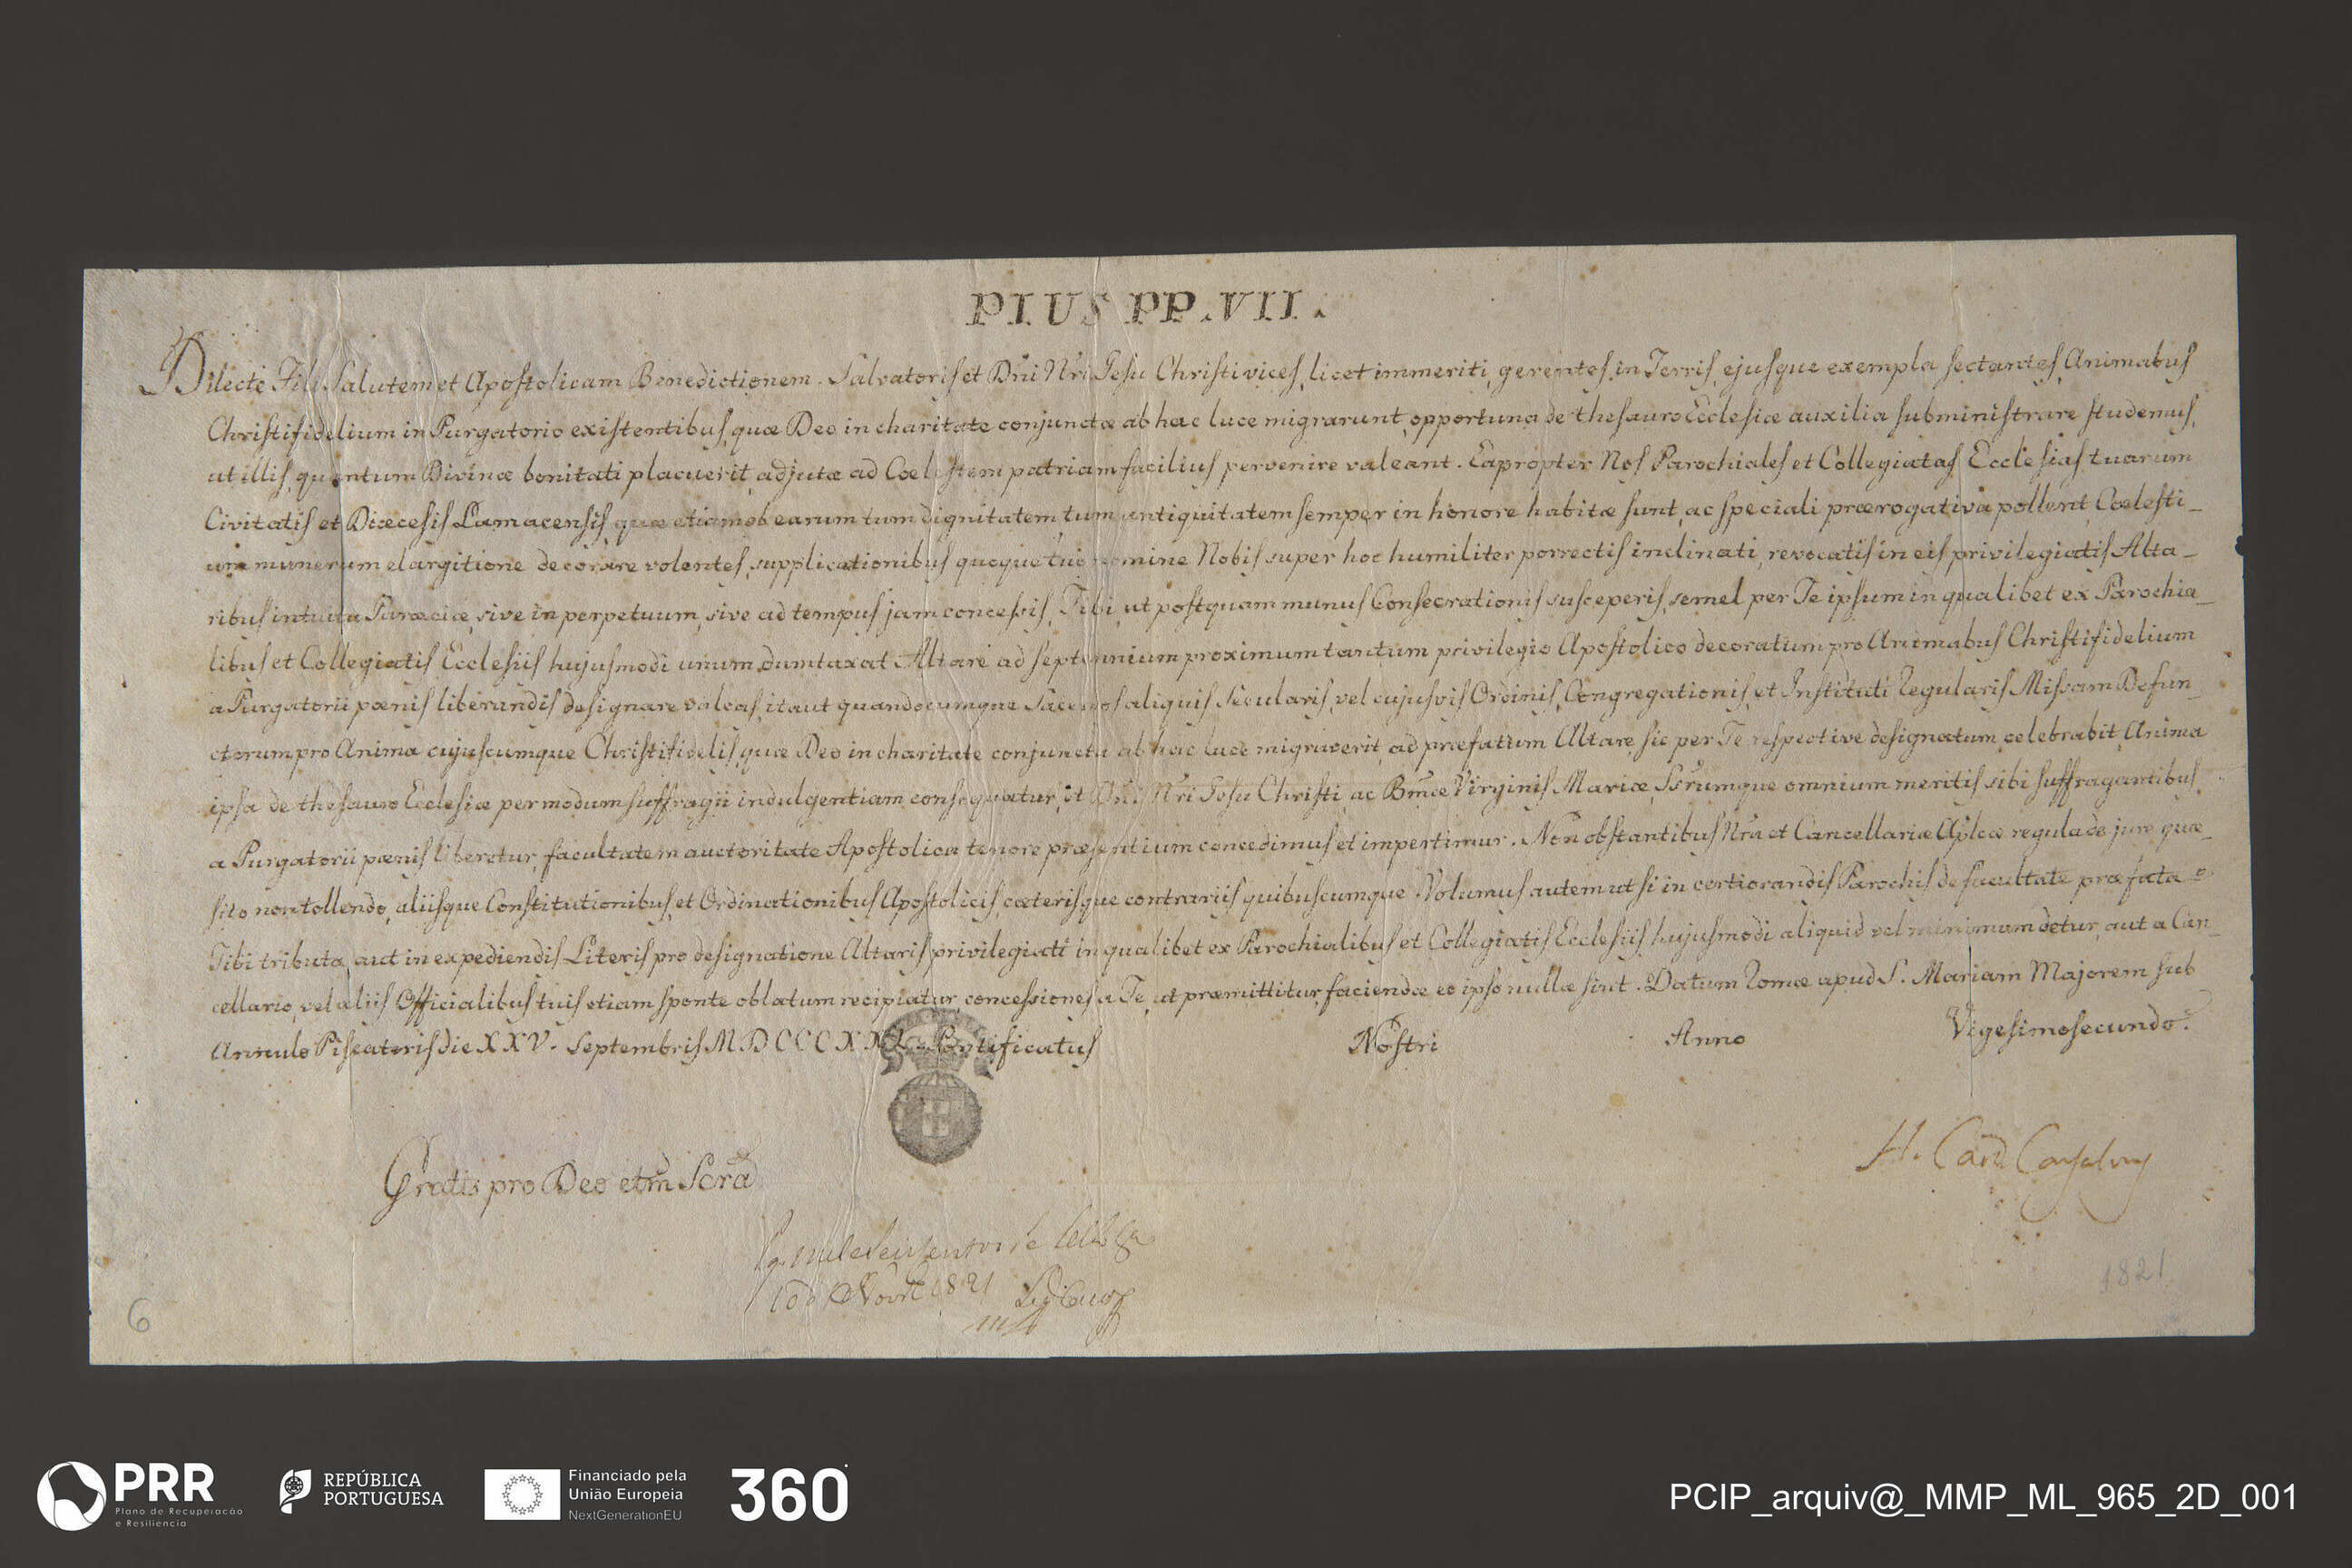 PIUS PP. VII.
Dilecte Fili Salutem et Apostolicam Benedictionem. Salvatoris et Dni Nri Jesu Christi vices, licet immeriti, gerentes in Terris, ejusque exempla sectantes, Animabus
Christifidelium in Purgatorio existentibus, quæ Deo in charitate conjunctæ ab hac luce migrarunt, opportuna de thesauro Ecclesiæ auxilia subministrare studemus,
ut illis, quantum Divinæ bonitati placuerit, adjutæ ad Cœlestem patriam facilius pervenire valeant. Eapropter Nos Parochiales et Collegiatas Ecclesias tuarum
Civitatis et Diœcesis Lamacensis, quæ etiam ob earum tum dignitatem, tum antiquitatem semper in honore habitæ sunt, ac speciali prærogativa pollent, Cœlesti-
um munerum elargitione decorare volentes, supplicationibus quoque tuo nomine Nobis super hoc humiliter porrectis inclinati, revocatis in eis privilegiatis Alta-
ribus intuitu Parœciæ, sive in perpetuum, sive ad tempus jam concessis, Tibi, ut postquam munus Consecrationis susceperis, semel per Te ipsum in qualibet ex Parochia-
libus et Collegiatis Ecclesiis hujusmodi unum dumtaxat Altare ad septennium proximum tantum privilegio Apostolico decoratum pro Animabus Christifidelium
a Purgatorii pœnis liberandis designare valeas, ita ut quandocumque Sacerdos aliquis Secularis, vel cujusvis Ordinis, Congregationis, et Instituti Regularis Missam Defun-
ctorum pro Anima cujuscumque Christifidelis, quæ Deo in charitate conjuncta ab hac luce migraverit, ad præfatum Altare sic per Te respective designatum celebrabit, Anima
ipsa de thesauro Ecclesiæ per modum suffragii indulgentiam consequatur, et Dni Nri Jesu Christi, ac Bmæ Virginis Mariæ, SSrumque omnium meritis sibi suffragantibus,
a Purgatorii pœnis liberetur, facultatem auctoritate Apostolica tenore præsentium concedimus et impertimur. Non obstantibus Nra et Cancellariæ Aplcæ regula de jure quæ-
sito non tollendo, aliisque Constitutionibus, et Ordinationibus Apostolicis, cæterisque contrariis quibuscumque. Volumus autem ut si in certiorandis Parochis de facultate præfata
Tibi tributa, aut in expediendis Literis pro designatione Altaris privilegiati in qualibet ex Parochialibus et Collegiatis Ecclesiis hujusmodi aliquid vel minimum detur, aut a Can-
cellario, vel aliis Officialibus tuis etiam sponte oblatum recipiatur, concessiones a Te, ut præmittitur, faciendæ eo ipso nullæ sint. Datum Romæ apud S. Mariam Majorem sub
Annulo Piscatoris die XXV. Septembris MDCCCXXI. Pontificatus Nostri Anno Vigesimosecundo.
H. Card
Gratis pro Deo etm Scra
Novre 1821
1821
6
PRR
Plano de Recuperação
e Resiliência
REPÚBLICA
PORTUGUESA
Financiado pela
União Europeia
NextGenerationEU
360
PCIP_arquiv@_MMP_ML_965_2D_001